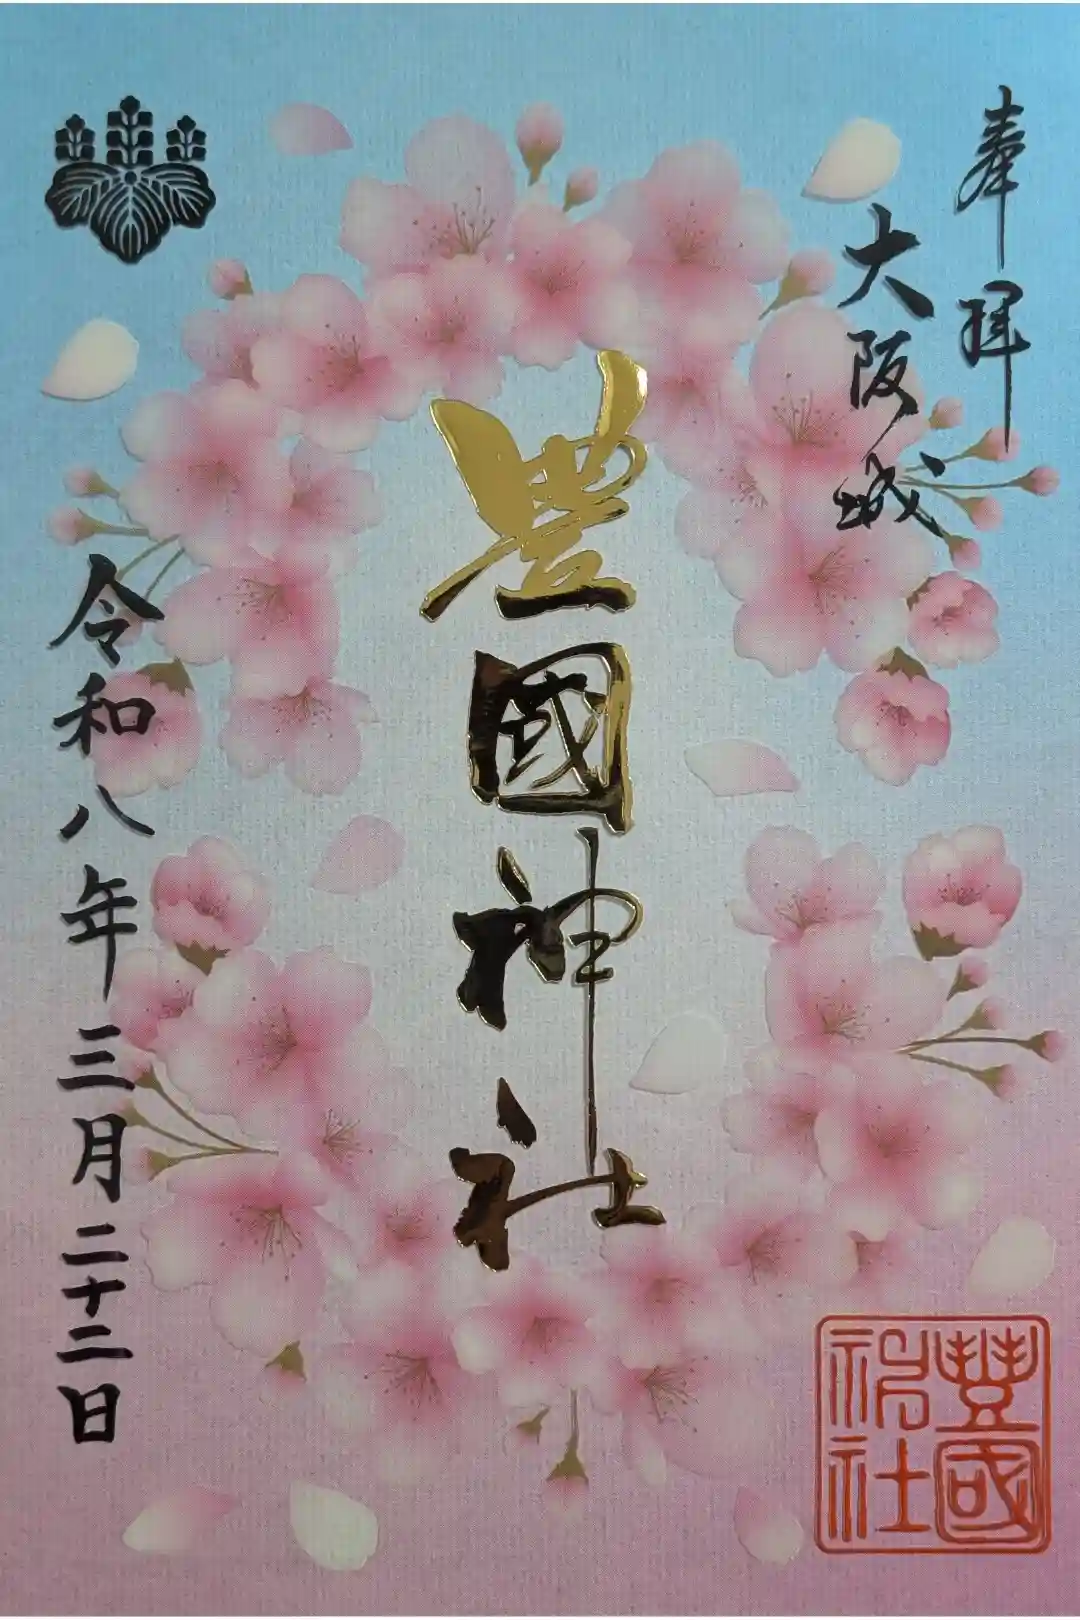 奉拝
大阪城
豊國神社
令和八年三月二十二日
豊國神社